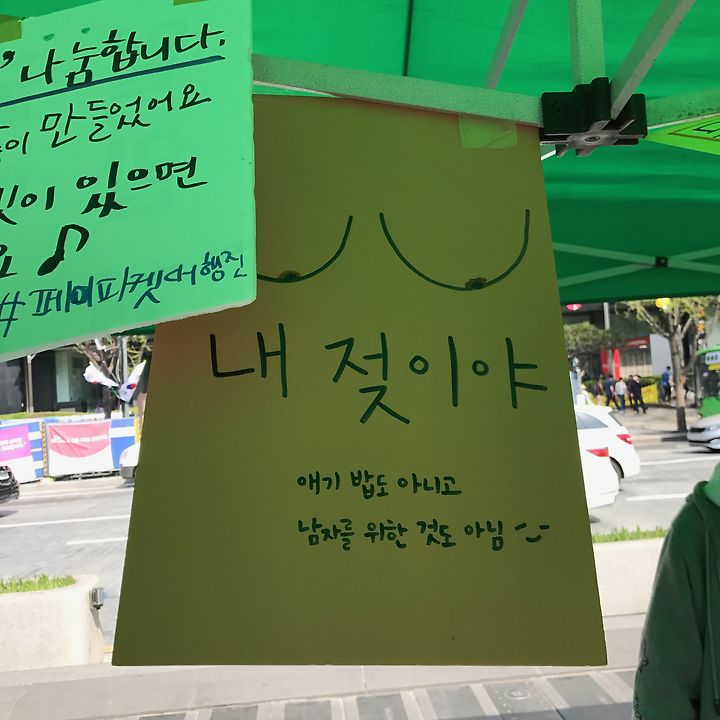 나눔합니다.
만들었어요
있으면
#페이피켓대행진
내 젖이야
애기 밥도 아니고
남자를 위한 것도 아님